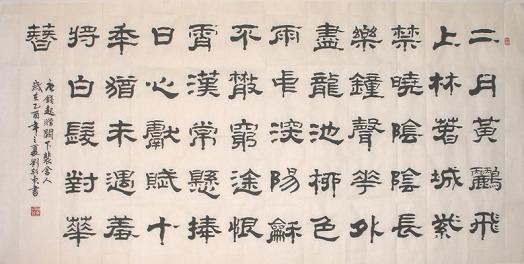 二月黃鸝飛
上林萅城紫
禁曉陰陰長
樂鐘聲華外
盡龍池柳色
雨中深陽龢
不散窮途恨
霄漢常懸捧
日心獻賦十
年猶未遇羞
將白髮對華
簪
唐錢起贈闕下裴舍人
歲在乙酉年之夏劉書